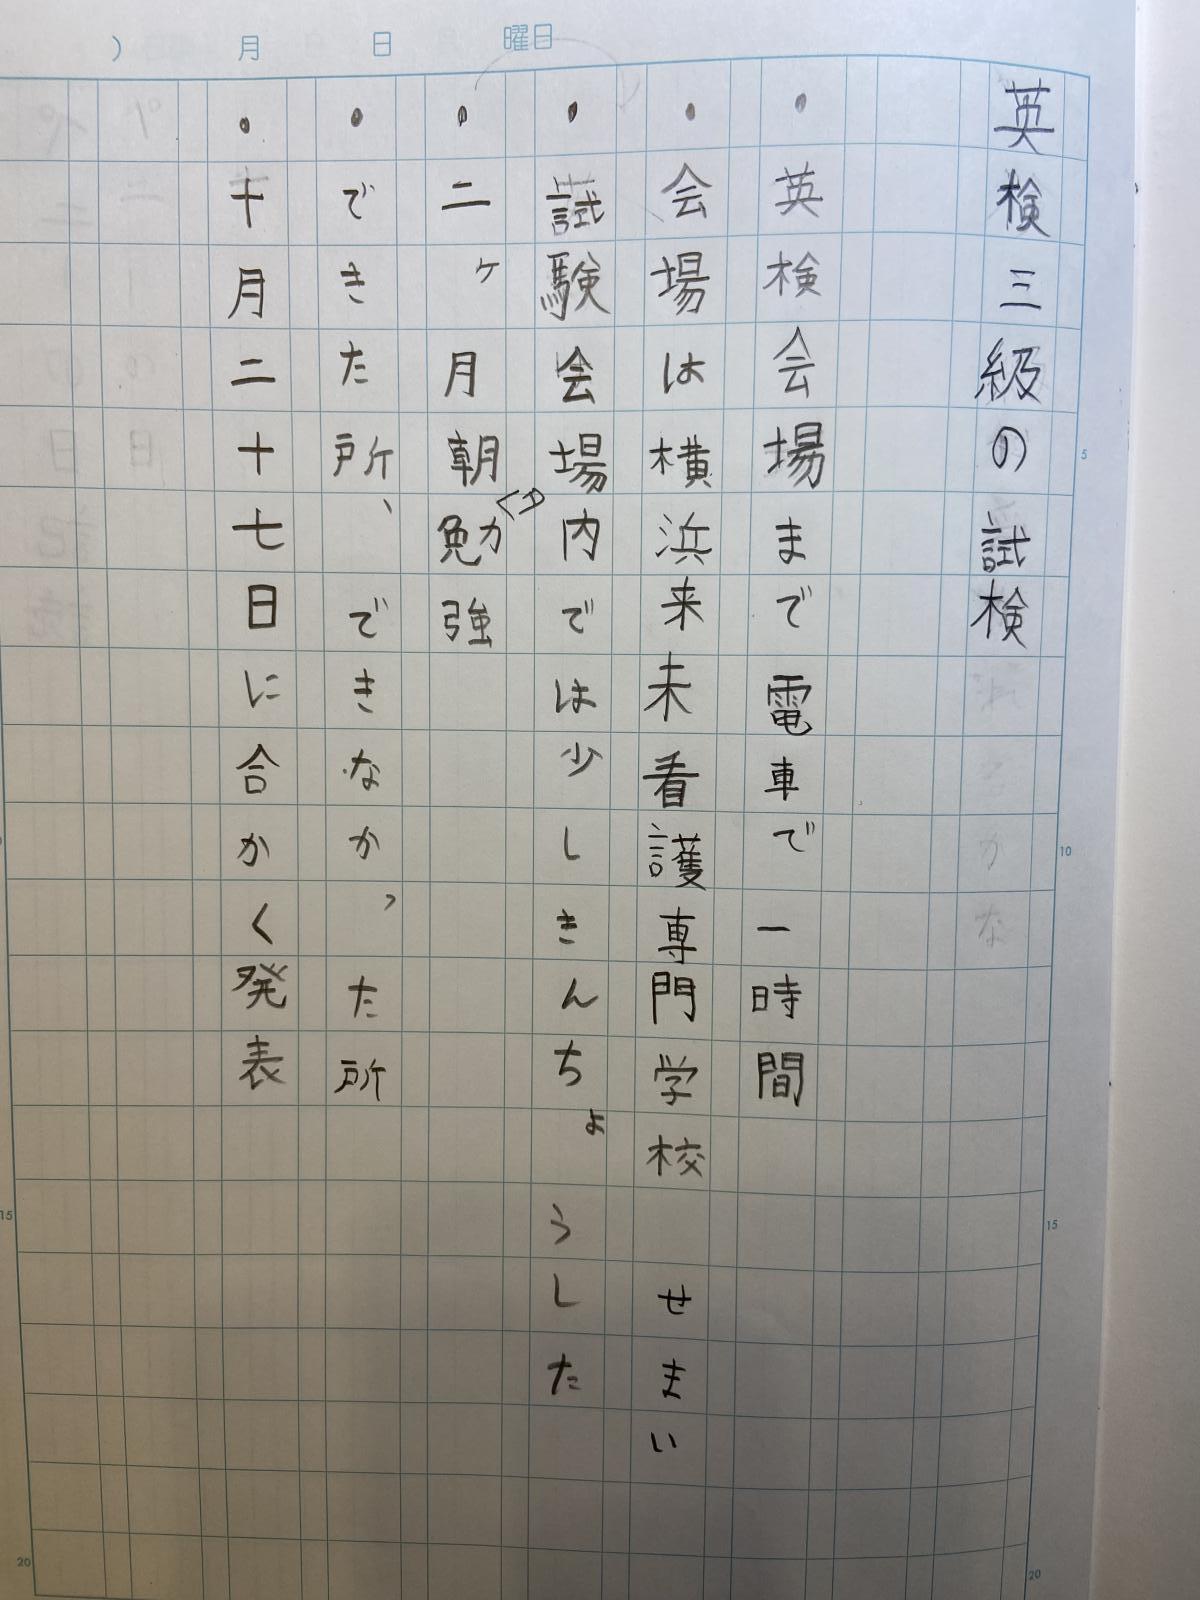 ）　月　日　曜日
英検三級の試検
・英検会場まで電車で一時間
・会場は横浜来未看護専門学校　せまい
・試験会場内では少しきんちょうした
・二ヶ月朝勉強
・できた所、できなかった所
・十月二十七日に合かく発表
5
10
15
20
15
20